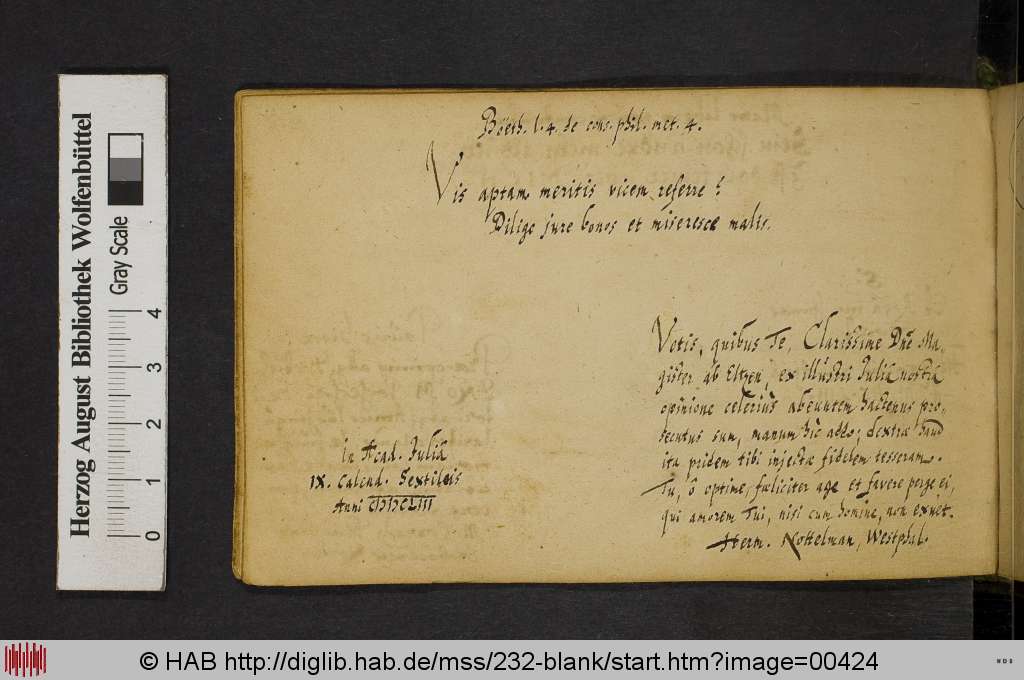 Boëth. l. 4. de cons. phil. met. 4.
Vis aptam meritis vicem referre?
Dilige jure bonos et miseresce malis.
Votis, quibus Te, Clarissime Dne Ma-
gister ab Eltzen, ex illustri Juliâ nostrâ
opinione celeriùs abeuntem hactenus pro-
secutus sum, manum hîc addo; dextræ haud
ita pridem tibi injectæ fidelem tesseram.
Tu, ô optime, fœliciter age et favere perge ei,
qui amorem Tui, nisi cum homine, non exuet.
Herm. Nottelman, Westphal.
in Acad. Juliâ
IX. Calend. Sextileis
Anni
Herzog August Bibliothek Wolfenbüttel
Gray Scale
0 1 2 3 4
© HAB http://diglib.hab.de/mss/232-blank/start.htm?image=00424